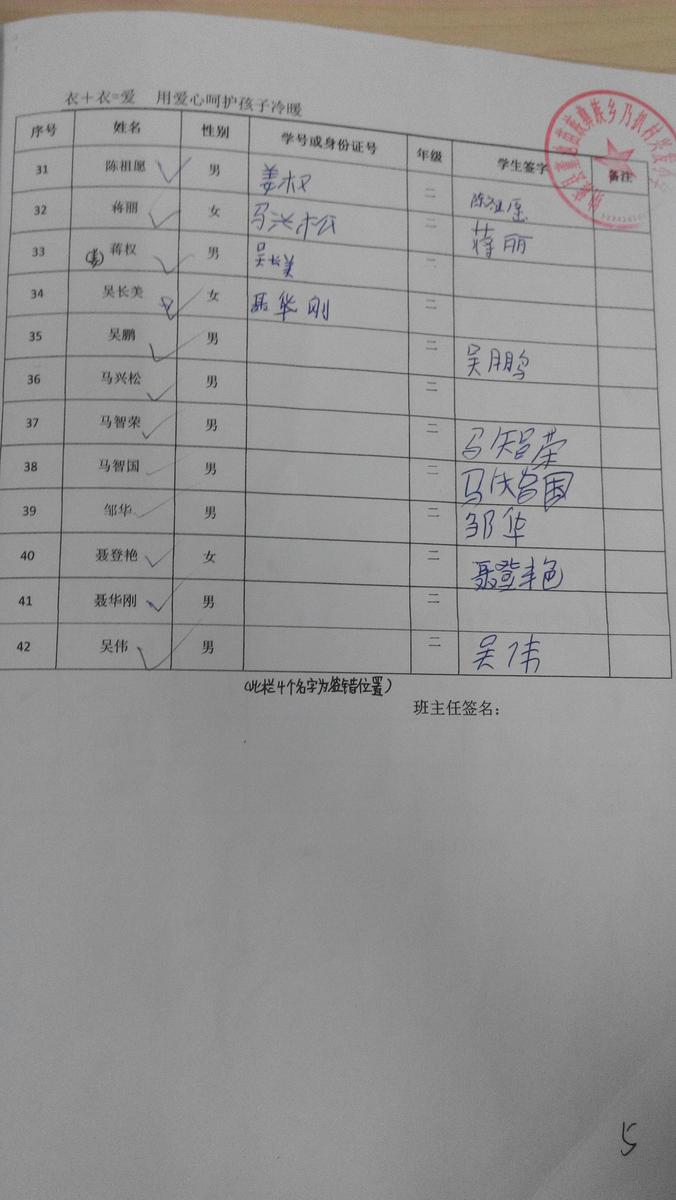 衣+衣=爱 用爱心呵护孩子冷暖
序号 姓名 性别 学号或身份证号 年级 学生签字 备注
31 陈祖愿 男 姜权 二 陈祖愿
32 蒋丽 女 马兴松 二 蒋丽
33 (姜) 蒋权 男 吴长美 二
34 吴长美 女 聂华刚 二
35 吴鹏 男 二 吴鹏
36 马兴松 男 二
37 马智荣 男 二 马智荣
38 马智国 男 二 马智国
39 邹华 男 二 邹华
40 聂登艳 女 二 聂登艳
41 聂华刚 男 二
42 吴伟 男 二 吴伟
(此栏4个名字为签错位置)
班主任签名：
5